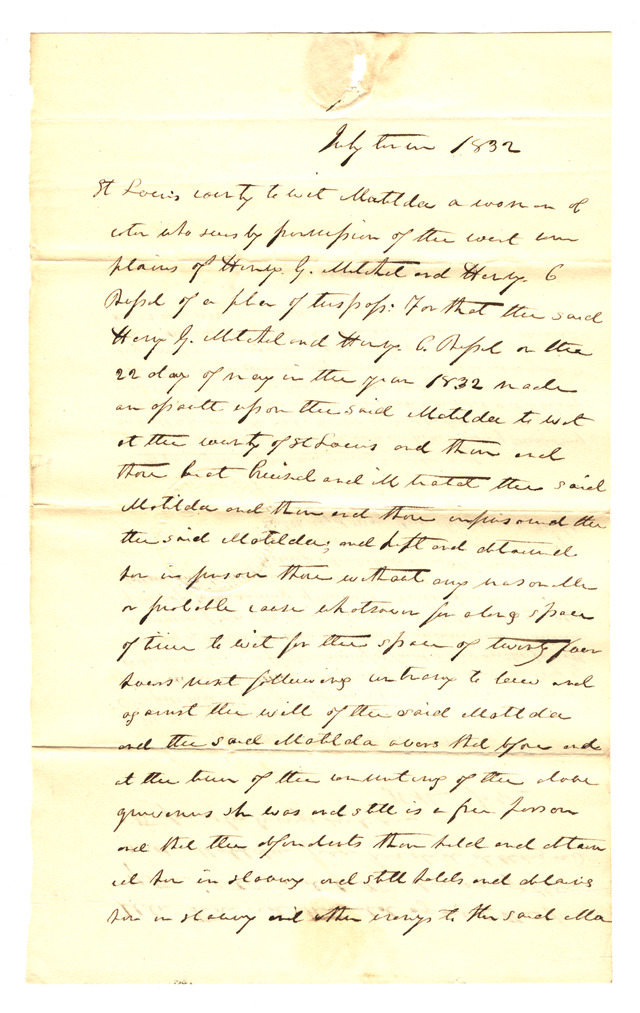 July term 1832
St Louis county to wit Matilda a woman of
color who sues by permission of the court com
plains of Henry G. Mitchel and Henry. C
of a plea of trespass: For that the said
Henry G. Mitchel and Henry. C. on the
22 day of may in the year 1832 made
an assault upon the said Matilda to wit
at the county of St Louis and then and
there beat bruised and ill treated the said
Matilda and then and there imprisoned the
the said Matilda, and kept and detained
her in prison there without any reasonable
or probable cause whatsoever for a long space
of time to wit for the space of twenty four
hours next following contrary to law and
against the will of the said Matilda
and the said Matilda avers that before and
at the time of the committing of the above
grievances she was and still is a free person
and that the defendants then held and detain
ed her in slavery and still holds and detains
her in slavery and other wrongs to the said Ma